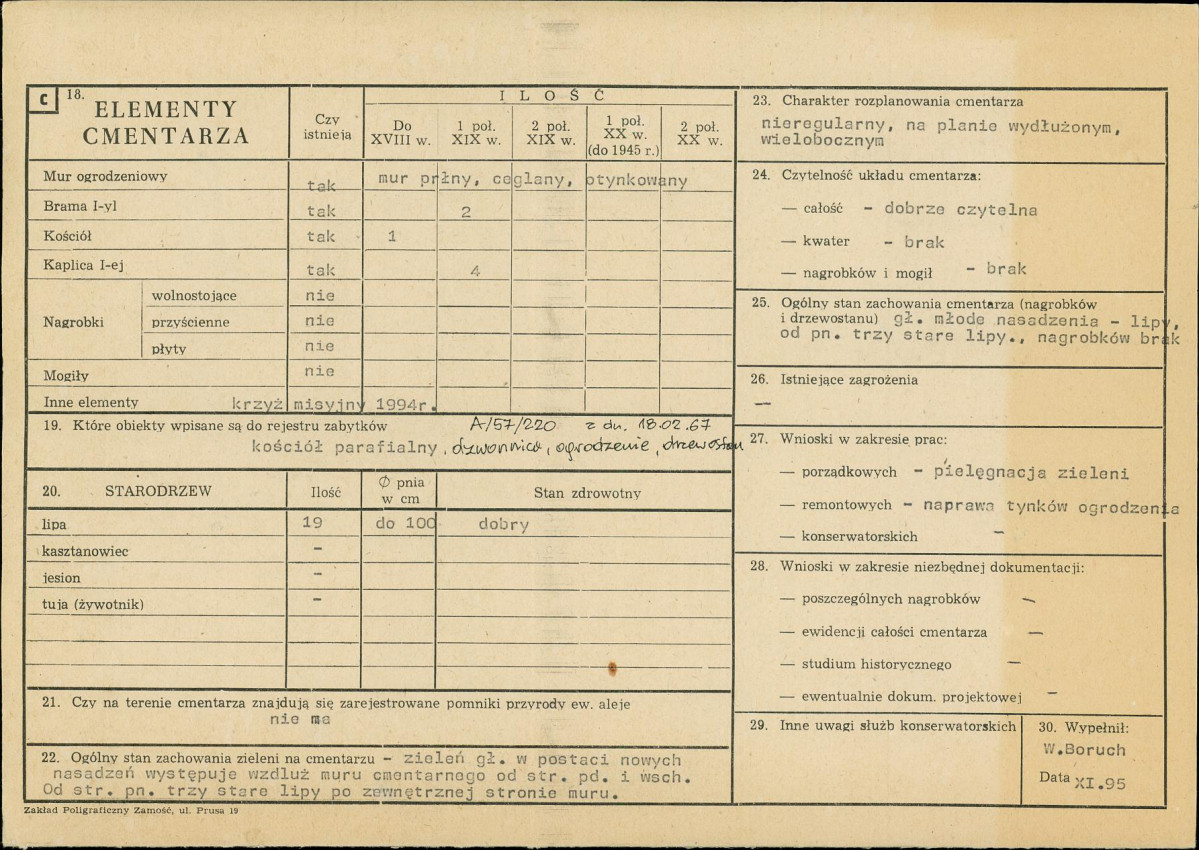 C
18.
ELEMENTY
CMENTARZA
Czy
istnieją
ILOŚĆ
Do
XVIII w.
1 poł.
XIX w.
2 poł.
XIX w.
1 poł.
XX w.
(do 1945 r.)
2 poł.
XX w.
Mur ogrodzeniowy tak mur prłny, ceglany, otynkowany
Brama I-yl tak 2
Kościół tak 1
Kaplica I-ej tak 4
Nagrobki
wolnostojące nie
przyścienne nie
płyty nie
Mogiły nie
Inne elementy krzyż misyjny 1994r.
19. Które obiekty wpisane są do rejestru zabytków A/57/220 z dn. 18.02.67
kościół parafialny, dzwonnica, ogrodzenie, drzewostan
20. STARODRZEW Ilość Ø pnia
w cm
Stan zdrowotny
lipa 19 do 100 dobry
kasztanowiec –
jesion –
tuja (żywotnik) –
21. Czy na terenie cmentarza znajdują się zarejestrowane pomniki przyrody ew. aleje
nie ma
22. Ogólny stan zachowania zieleni na cmentarzu – zieleń gł. w postaci nowych
nasadzeń występuje wzdłuż muru cmentarnego od str. pd. i wsch.
Od str. pn. trzy stare lipy po zewnętrznej stronie muru.
Zakład Poligraficzny Zamość, ul. Prusa 19
23. Charakter rozplanowania cmentarza
nieregularny, na planie wydłużonym,
wielobocznym
24. Czytelność układu cmentarza:
— całość – dobrze czytelna
— kwater – brak
— nagrobków i mogił – brak
25. Ogólny stan zachowania cmentarza (nagrobków
i drzewostanu) gł. młode nasadzenia – lipy,
od pn. trzy stare lipy., nagrobków brak
26. Istniejące zagrożenia
—
27. Wnioski w zakresie prac:
— porządkowych – pielęgnacja zieleni
— remontowych – naprawa tynków ogrodzenia
— konserwatorskich –
28. Wnioski w zakresie niezbędnej dokumentacji:
— poszczególnych nagrobków –
— ewidencji całości cmentarza –
— studium historycznego –
— ewentualnie dokum. projektowej –
29. Inne uwagi służb konserwatorskich
30. Wypełnił:
W.Boruch
Data XI.95